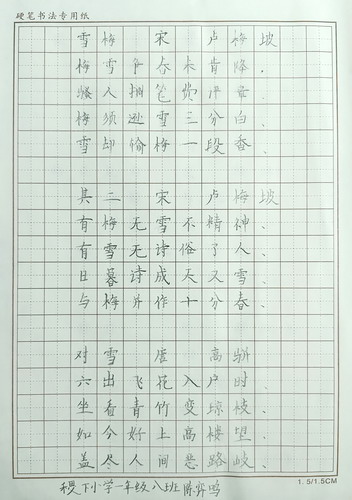 硬笔书法专用纸
雪梅 宋 卢梅坡
梅雪争春未肯降.
骚人搁笔费评章.
梅须逊雪三分白、
雪却输梅一段香、
其二 宋 卢梅坡
有梅无雪不精神、
有雪无诗俗了人、
日暮诗成天又雪、
与梅并作十分春、
对雪 唐 高骈
六出飞花入户时、
坐看青竹变琼枝、
如今好上高楼望、
盖尽人间恶路岐、
稷下小学一年级八班 陈弈鸣
1.5/1.5CM